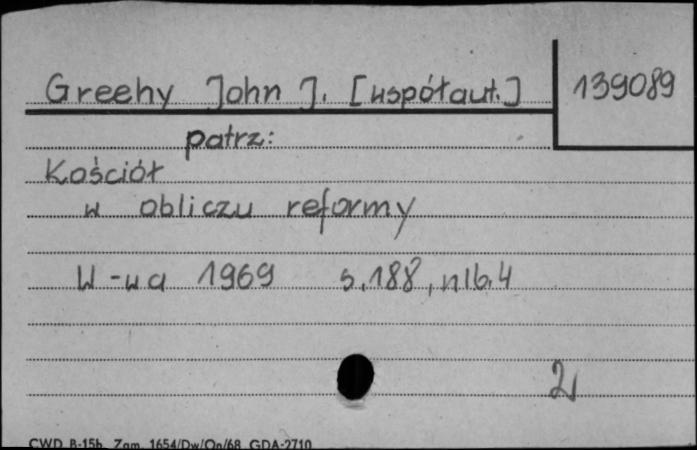 Greehy John J. [współaut.] 139089
patrz:
Kościół
w obliczu reformy
W-wa 1969 s.188, nlb.4
2
CWD B-15b. Zam. 1654/Dw/On/68 GDA-2710